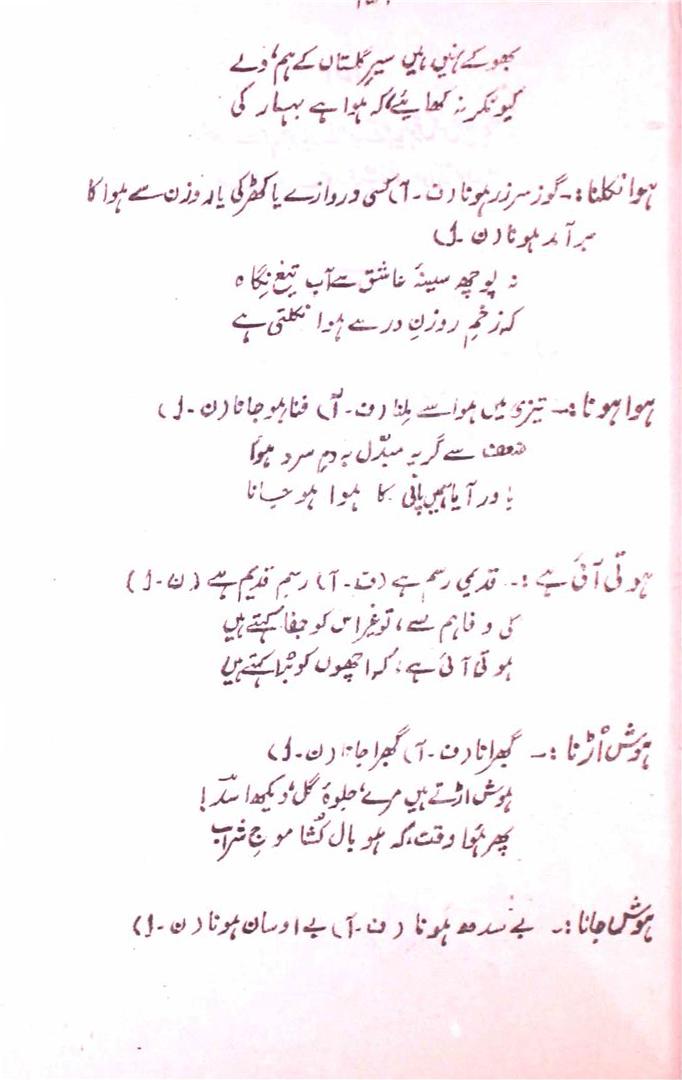 بھوکے نہیں ہیں سیرِ گلستاں کے ہم، ولے
کیونکر نہ کھایئے، کہ ہوا ہے بہار کی
ہوا نکلنا :۔ گوز سرزد ہونا (ف۔آ) کسی دروازے یا کھڑکی یا روزن سے ہوا کا
برآمد ہونا (ن۔ل)
نہ پوچھ سینۂ عاشق سے آبِ تیغِ نگاہ
کہ زخمِ روزنِ در سے ہوا نکلتی ہے
ہوا ہونا :۔ تیزی میں ہوا سے ملنا (ف۔آ) فنا ہو جانا (ن۔ل)
ضعف سے گریہ مبدّل بہ دمِ سرد ہوا
باور آیا ہمیں پانی کا ہوا ہو جانا
ہوتی آئی ہے :۔ قدیمی رسم ہے (ف۔آ) رسمِ قدیم ہے (ن۔ل)
کی وفا ہم سے، تو غیر اس کو جفا کہتے ہیں
ہوتی آئی ہے، کہ اچھوں کو بُرا کہتے ہیں
ہوش اُڑنا :۔ گھبرانا (ف۔آ) گھبرا جانا (ن۔ل)
ہوش اڑتے ہیں مرے، جلوۂ گل، دیکھ اسدؔ!
پھر ہُوا وقت، کہ ہو بال کُشا موجِ شراب
ہوش جانا :۔ بے سدھ ہونا (ف۔آ) بے اوسان ہونا (ن۔ل)